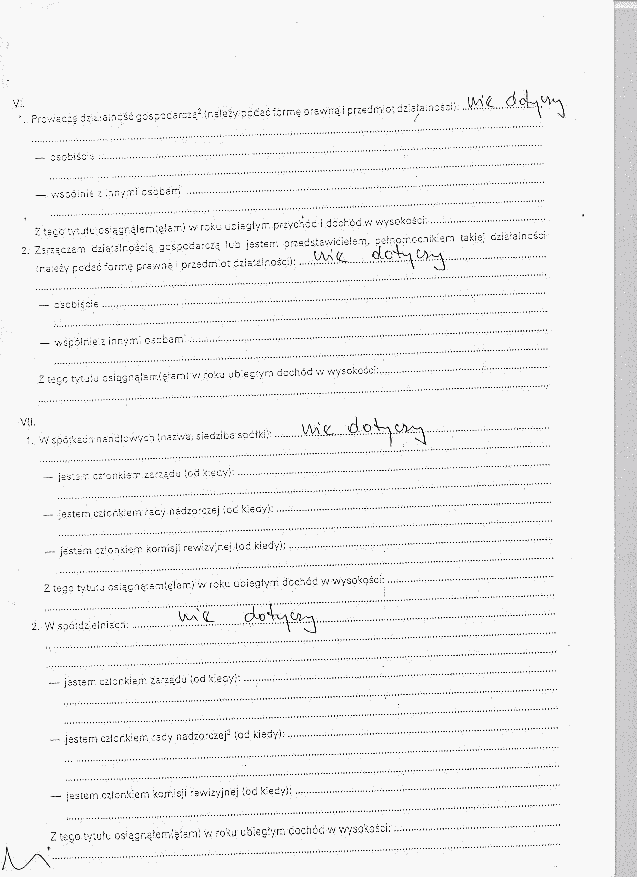 VI.
1. Prowadzę działalność gospodarczą² (należy podać formę prawną i przedmiot działalności): nie dotyczy
— osobiście
— wspólnie z innymi osobami
Z tego tytułu osiągnąłem(ęłam) w roku ubiegłym przychód i dochód w wysokości:
2. Zarządzam działalnością gospodarczą lub jestem przedstawicielem, pełnomocnikiem takiej działalności
(należy podać formę prawną i przedmiot działalności): nie dotyczy
— osobiście
— wspólnie z innymi osobami
Z tego tytułu osiągnąłem(ęłam) w roku ubiegłym dochód w wysokości:
VII.
1. W spółkach handlowych (nazwa, siedziba spółki): nie dotyczy
— jestem członkiem zarządu (od kiedy):
— jestem członkiem rady nadzorczej (od kiedy):
— jestem członkiem komisji rewizyjnej (od kiedy):
Z tego tytułu osiągnąłem(ęłam) w roku ubiegłym dochód w wysokości:
2. W spółdzielniach: nie dotyczy
— jestem członkiem zarządu (od kiedy):
— jestem członkiem rady nadzorczej³ (od kiedy):
— jestem członkiem komisji rewizyjnej (od kiedy):
Z tego tytułu osiągnąłem(ęłam) w roku ubiegłym dochód w wysokości: